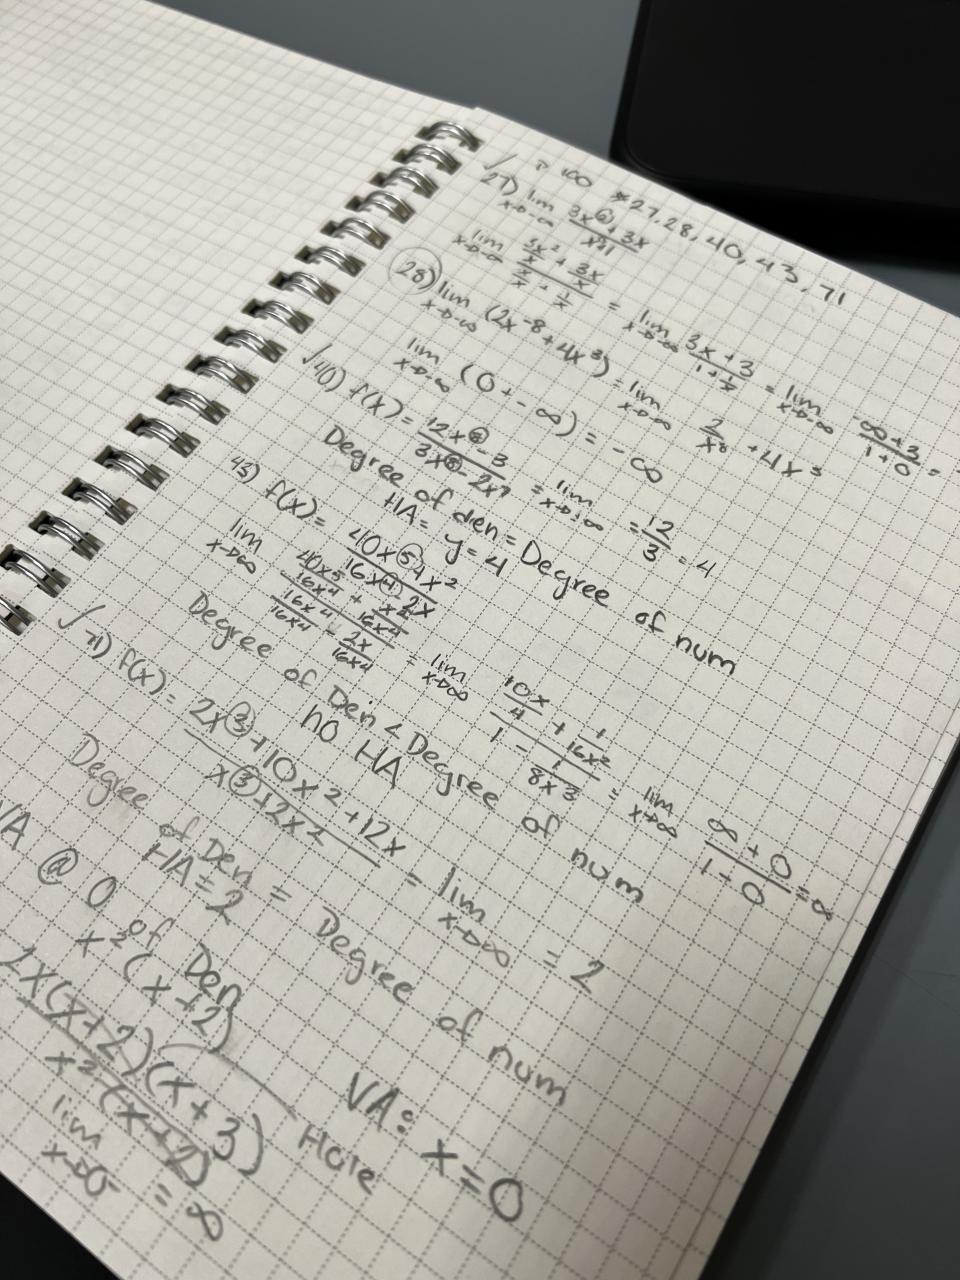 100 #27,28,40,43,71
✓ 27) lim x→-∞ 3x²+3x / x+1
lim x→-∞ (3x²/x + 3x/x) / (x/x + 1/x) = lim x→-∞ (3x+3) / (1+1/x) = lim x→-∞ (-∞+3) / (1+0) =
28) lim x→-∞ (2x⁻⁸+4x³) = lim x→-∞ 2/x⁸ + 4x³
lim x→-∞ (0+-∞) = -∞
✓ 40) f(x)= (12x⁸-3) / (3x⁸-2x⁷) = lim x→∞ = 12/3 = 4
Degree of den = Degree of num
HA= y=4
43) f(x)= 40x⁵+x² / 16x⁴-2x
lim x→∞ (40x⁵/16x⁴ + x²/16x⁴) / (16x⁴/16x⁴ - 2x/16x⁴) = lim x→∞ (10x/4 + 1/16x²) / (1 - 1/8x³) = lim x→∞ (∞+0) / (1-0) = ∞
Degree of Den < Degree of num
no HA
✓ 71) f(x)= (2x³+10x²+12x) / (x³+2x²) = lim x→∞ = 2
Degree of Den = Degree of num
HA= 2
VA @ 0 of Den
x²(x+2)
2x(x+2)(x+3) / x²(x+2) Hole VA: x=0
lim x→0 = ∞